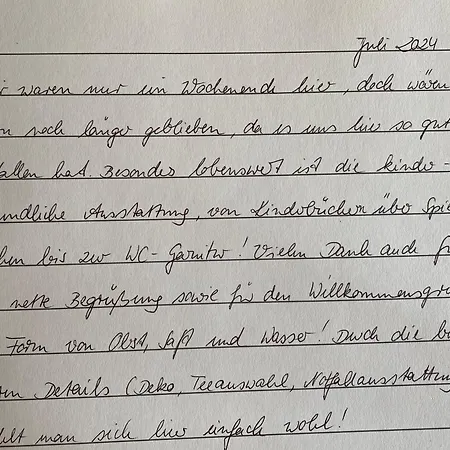 Juli 2024
r waren nur ein Wochenende hier, doch wären
n noch länger geblieben, da es uns hier so gut
allen hat. Besonders lobenswert ist die kinder-
undliche Ausstattung, von Kinderbüchern über Spie
hen bis zur WC-Garnitur! Vielen Dank auch f
nette Begrüßung sowie für den Willkommensgru
Form von Obst, Saft und Wasser! Durch die
en Details (Deko, Teeauswahl, Notfallausstattung
hlt man sich hier einfach wohl!